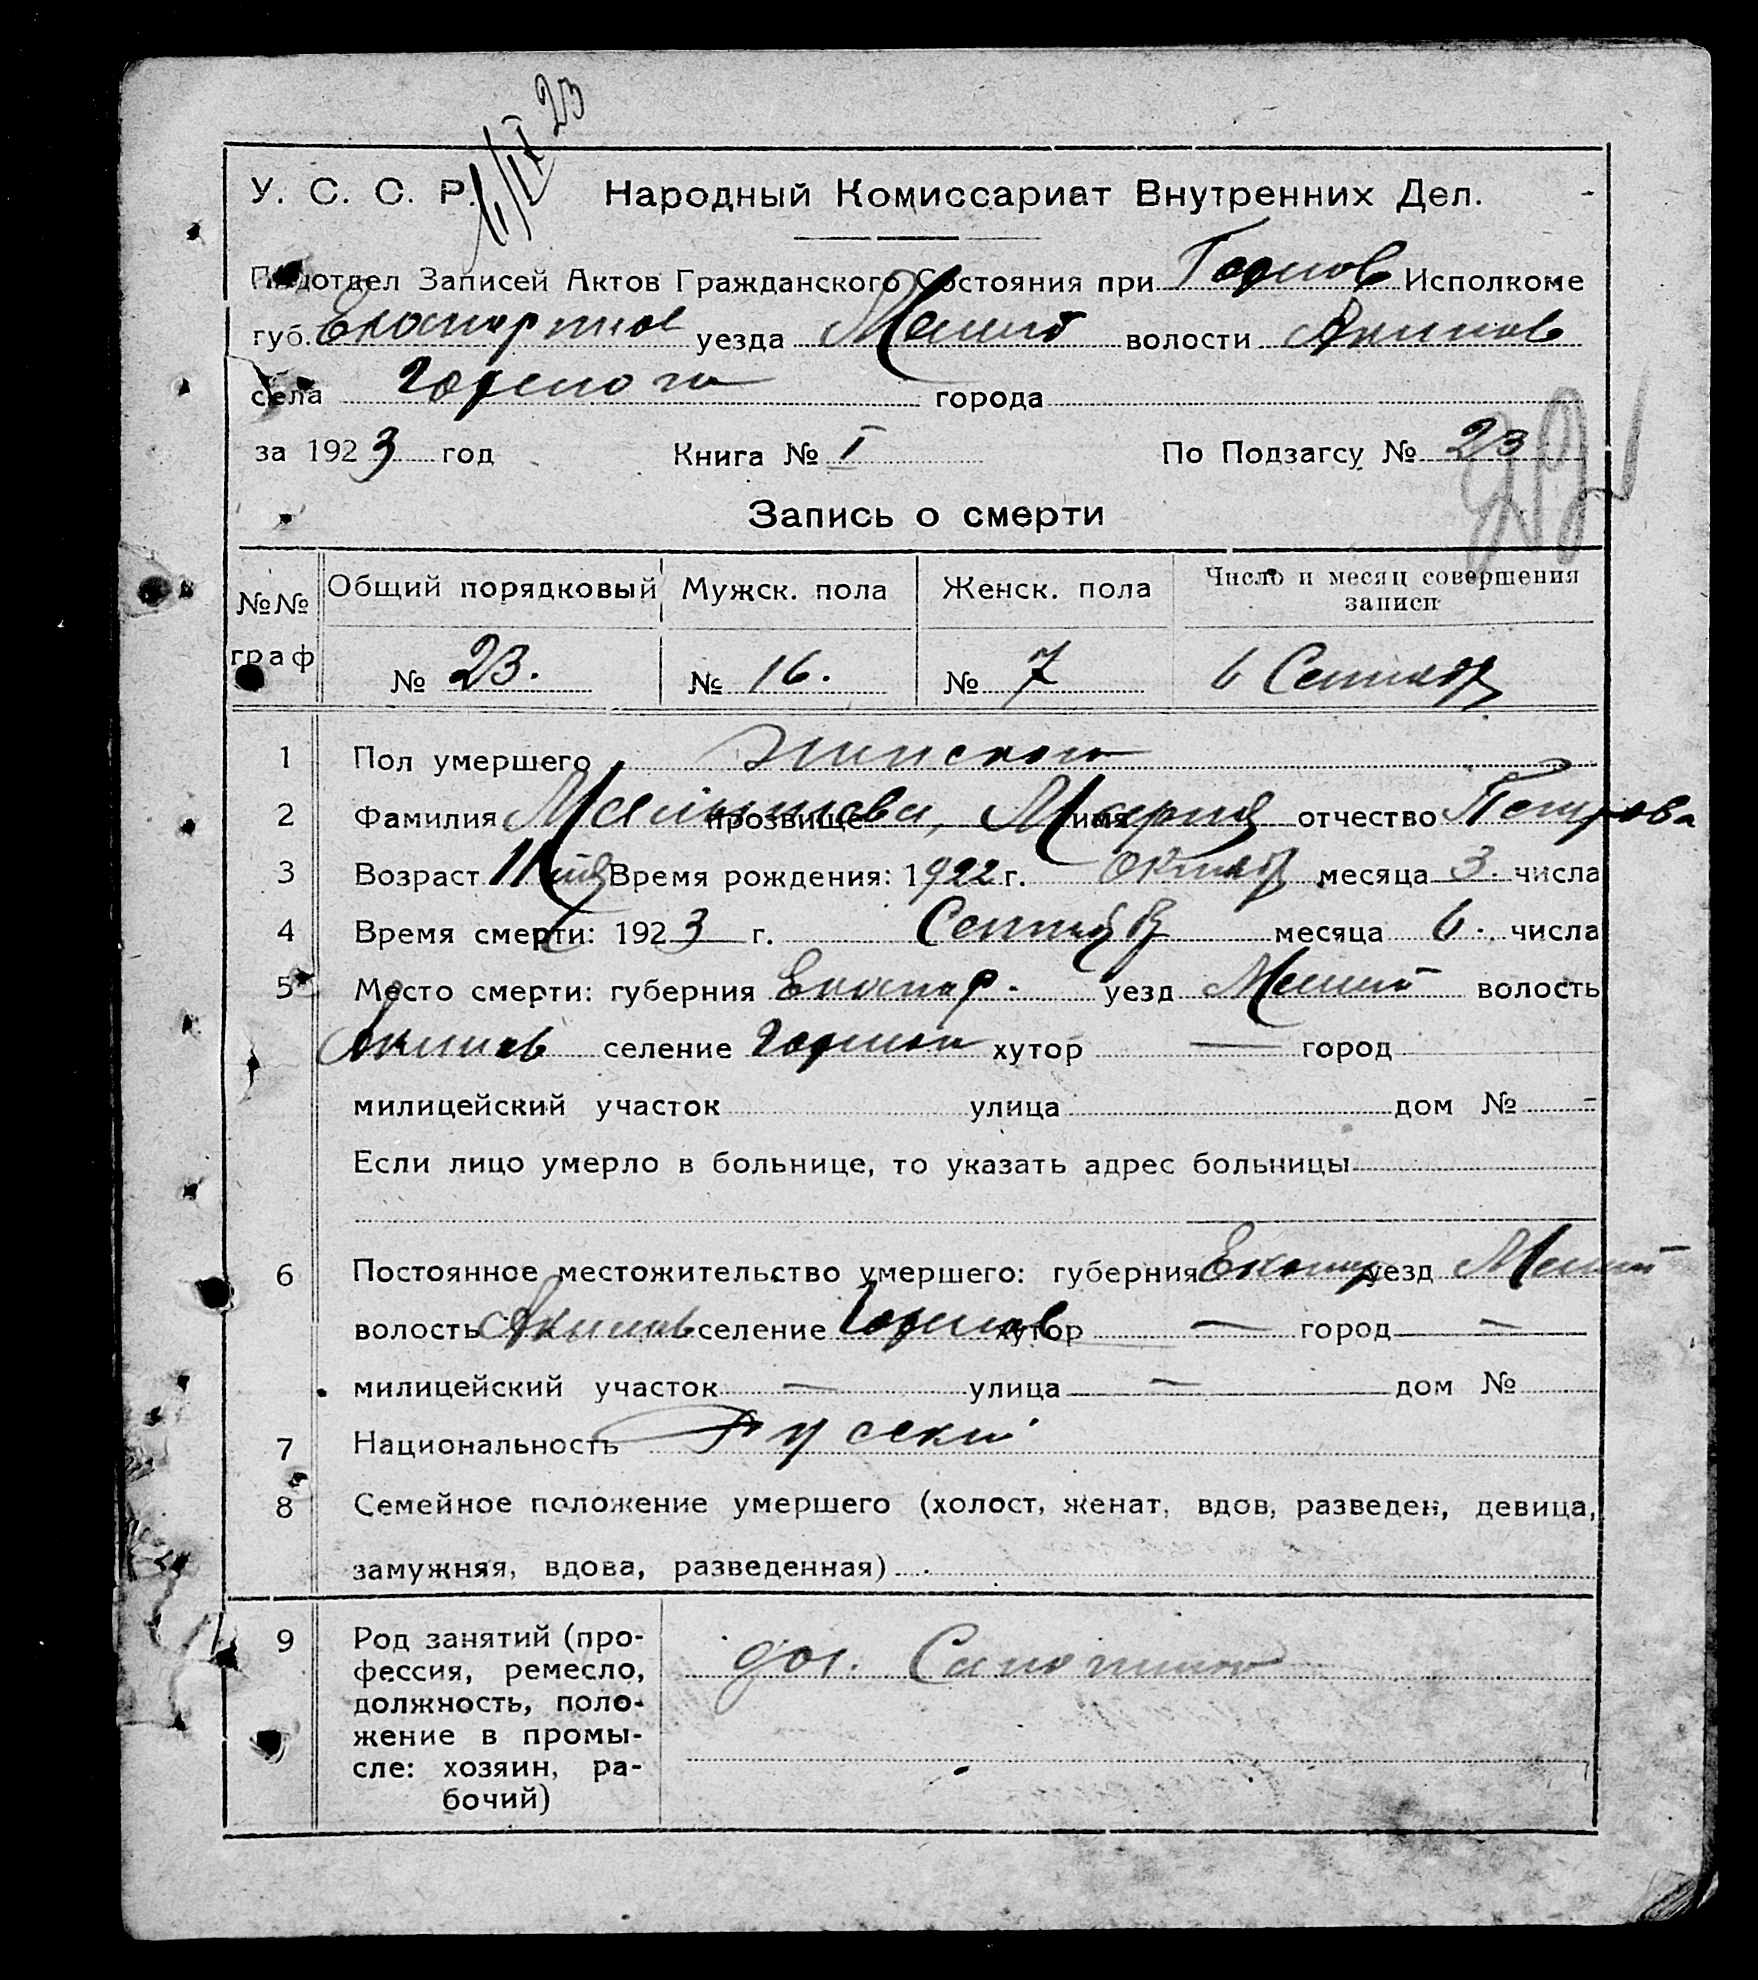 6/IX 23
У. С. С. Р. Народный Комиссариат Внутренних Дел.
Подотдел Записей Актов Гражданского Состояния при Горнов Исполкоме
губ. уезда Мелит волости Акимов
села города
за 1923 год Книга № I По Подзагсу № 23
Запись о смерти
№№ граф Общий порядковый Мужск. пола Женск. пола Число и месяц совершения записи
№ 23. № 16. № 7 6 Сентяб
1 Пол умершего женского
2 Фамилия прозвище имя Мария отчество Петрова
3 Возраст 11 Время рождения: 1922 г. Октяб месяца 3. числа
4 Время смерти: 1923 г. Сентяб месяца 6. числа
5 Место смерти: губерния Екатер. уезд Мелит волость
Акимов селение хутор — город
милицейский участок улица дом № -
Если лицо умерло в больнице, то указать адрес больницы
6 Постоянное местожительство умершего: губерния Екатер уезд Мелит
волость Акимов селение хутор — город —
милицейский участок — улица — дом №
7 Национальность Русский
8 Семейное положение умершего (холост, женат, вдов, разведен, девица,
замужняя, вдова, разведенная)
9 Род занятий (про-
фессия, ремесло,
должность, поло-
жение в промы-
сле: хозяин, ра-
бочий)